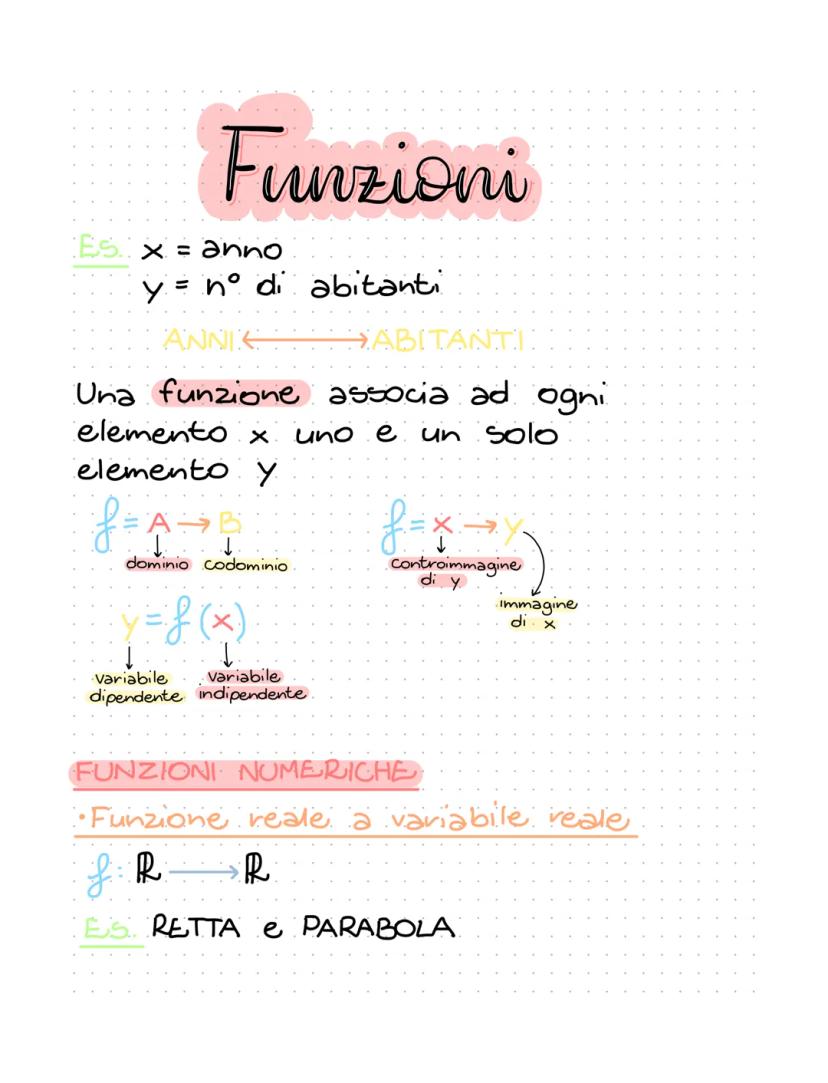 Funzioni
Es. x = anno
y = n° di abitanti
ANNI ⟷ ABITANTI
Una funzione associa ad ogni
elemento x uno e un solo
elemento y
f = A → B
dominio codominio
f = x → y
controimmagine
di y
immagine
di x
y = f (x)
variabile
dipendente
variabile
indipendente
FUNZIONI NUMERICHE
• Funzione reale a variabile reale
f: ℝ ⟶ ℝ
Es. RETTA e PARABOLA